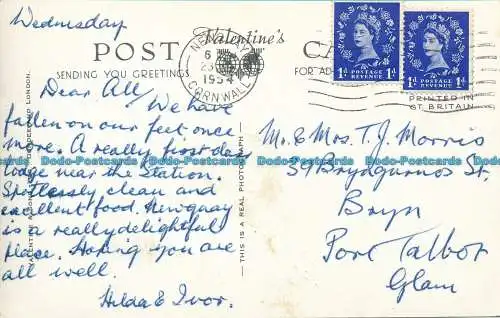 Wednesday
POST
Valentine's
CA
SENDING YOU GREETINGS
FOR AD
NEWQUAY
6
1954
CORNWALL
1d POSTAGE REVENUE 1d
1d POSTAGE REVENUE 1d
PRINTED IN
GT. BRITAIN
Dear All, We have
fallen on our feet once
more. A really first class
lodge near the Station.
Spotlessly clean and
excellent food. Newquay
is a really delightful
place. Hoping you are
all well.
Hilda & Ivor.
THIS IS A REAL PHOTOGRAPH
VALENTINE & SONS LTD. DUNDEE AND LONDON.
Mr. & Mrs. T. J. Morris
39 Bryngurnos St,
Bryn
Port Talbot
Glam
Dodo-Postcards Dodo-Postcards Dodo-Postcards Dodo-Postcards Dodo-Postcards